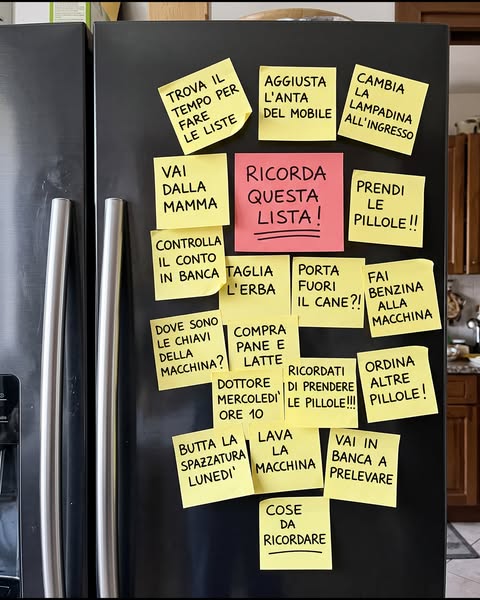 TROVA IL
TEMPO PER
FARE
LE LISTE
AGGIUSTA
L'ANTA
DEL MOBILE
CAMBIA
LA
LAMPADINA
ALL'INGRESSO
VAI
DALLA
MAMMA
RICORDA
QUESTA
LISTA!
PRENDI
LE
PILLOLE!!
CONTROLLA
IL CONTO
IN BANCA
TAGLIA
L'ERBA
PORTA
FUORI
IL CANE?!
FAI
BENZINA
ALLA
MACCHINA
DOVE SONO
LE CHIAVI
DELLA
MACCHINA?
COMPRA
PANE E
LATTE
DOTTORE
MERCOLEDI'
ORE 10
RICORDATI
DI PRENDERE
LE PILLOLE!!!
ORDINA
ALTRE
PILLOLE!
BUTTA LA
SPAZZATURA
LUNEDI'
LAVA
LA
MACCHINA
VAI IN
BANCA A
PRELEVARE
COSE
DA
RICORDARE